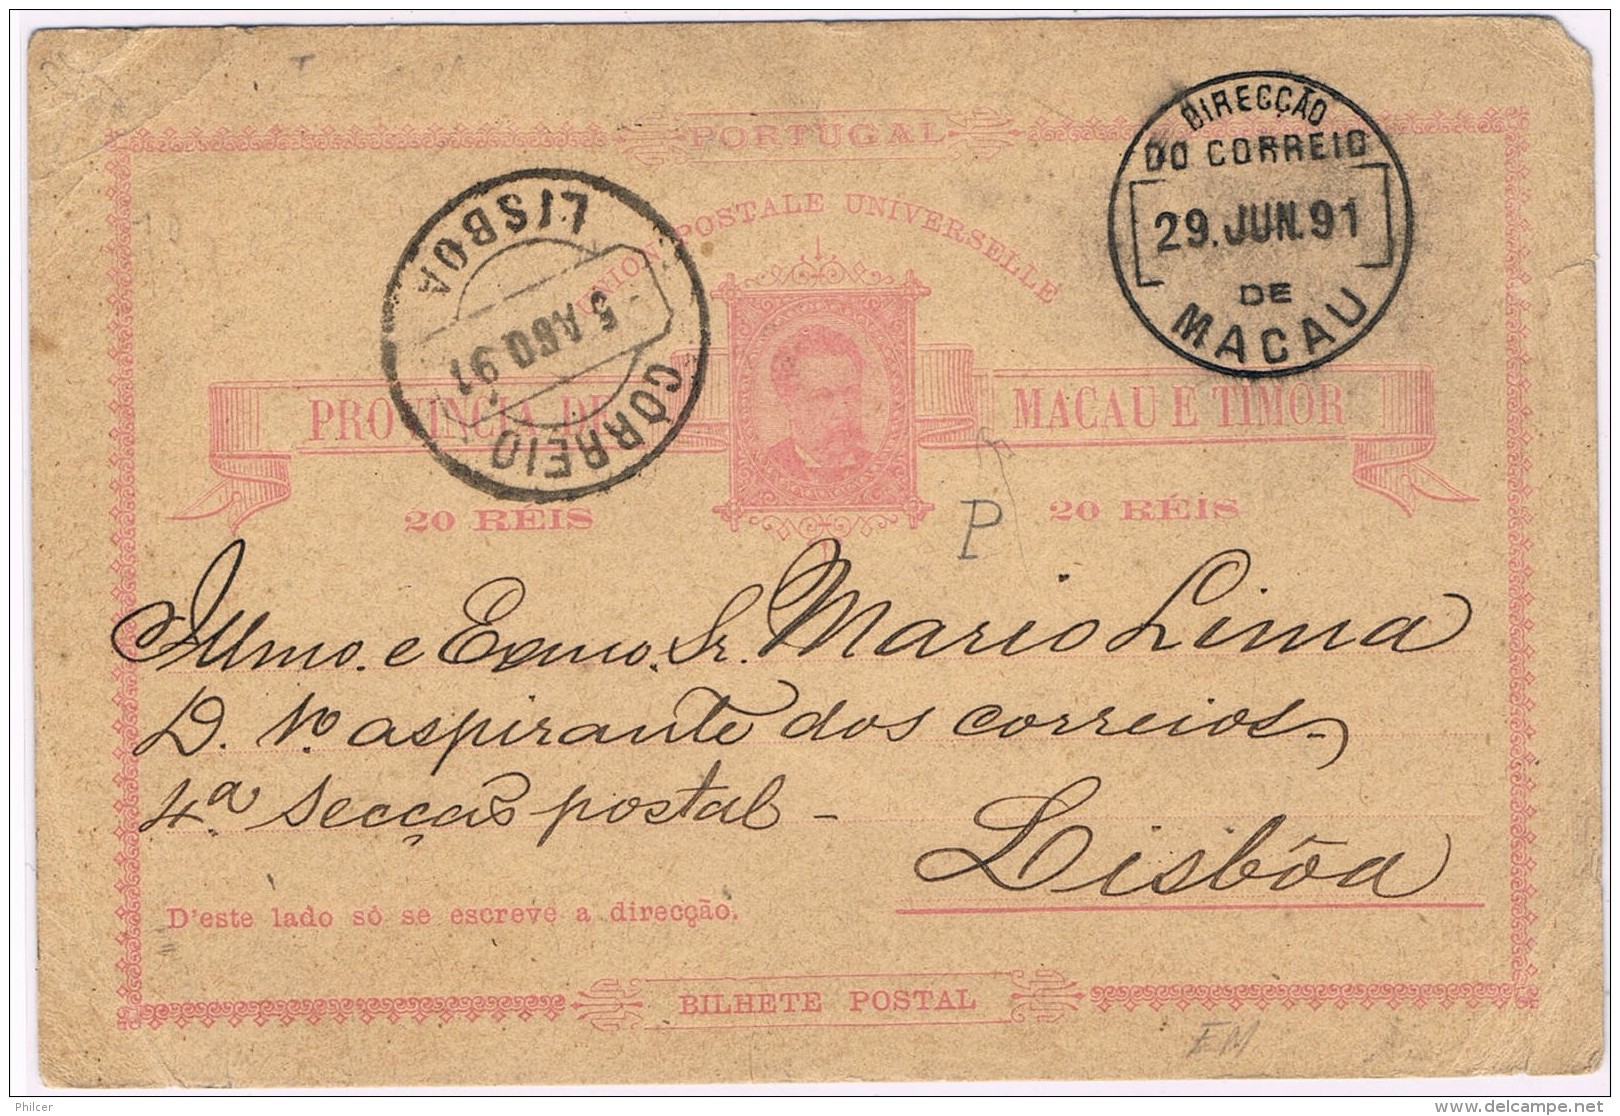 PORTUGAL
UNION POSTALE UNIVERSELLE
DIRECÇÃO
DO CORREIO
29. JUN. 91
DE
MACAU
LISBOA
5 AGO 91
CORREIO
PROVINCIA DE MACAU E TIMOR
20 RÉIS 20 RÉIS
P
Illmo. e Exmo. Sr. Mario Lima
D. 1º aspirante dos correios
4ª Secção postal -
Lisbôa
D'este lado só se escreve a direcção.
BILHETE POSTAL
EM
Philcer
www.delcampe.net